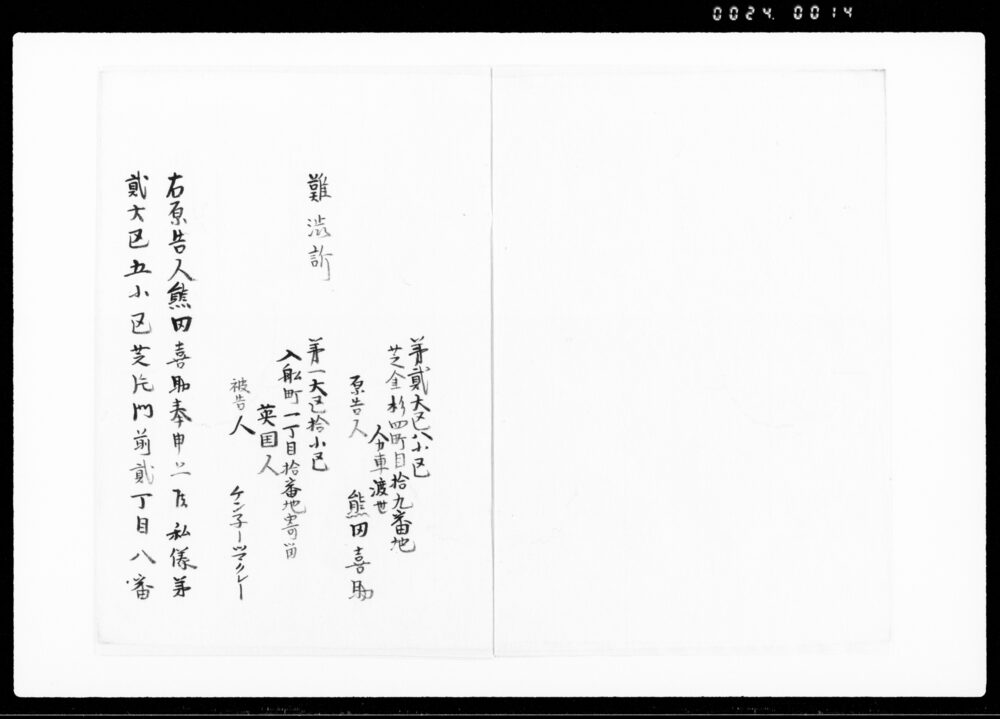 0024. 0014
難渋訴
第貳大区八小区
芝金杉四町目拾九番地
人力車渡世
原告人 熊田喜助
第一大区拾小区
入船町一丁目拾番地寄留
英国人
被告人 ケン子ーツマクレー
右原告人熊田喜助奉申上候私儀第
貳大区五小区芝片門前貳丁目八番